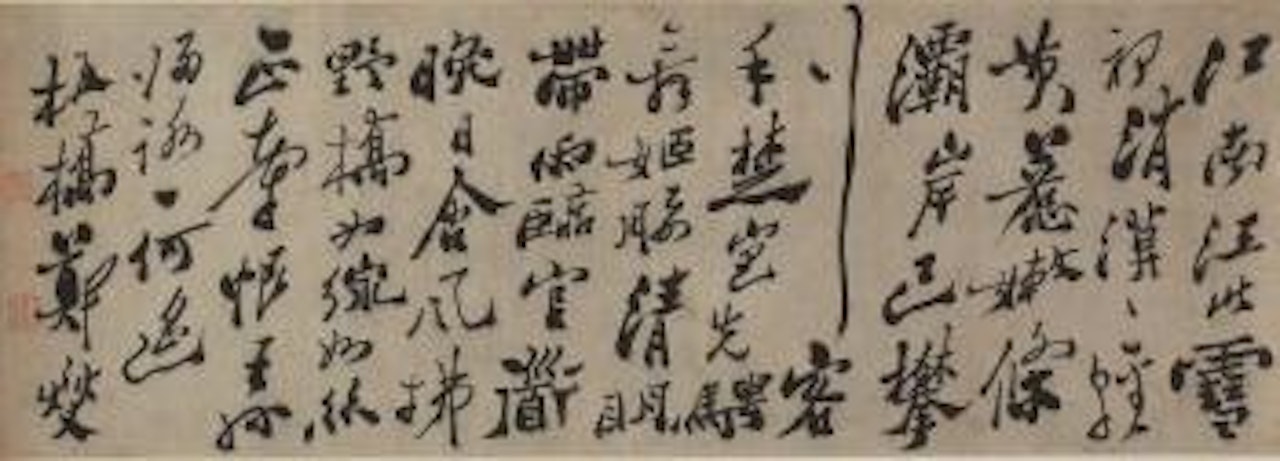 江南江北雪
初消漠々輕
黃惹嫩條
灞岸已攀
行客
手楚宮先騁
舞姬腰清明
帶雨臨官道
晚日含風拂
野橋如線如絲
正牽恨王孫
歸路一何遙
板橋鄭燮